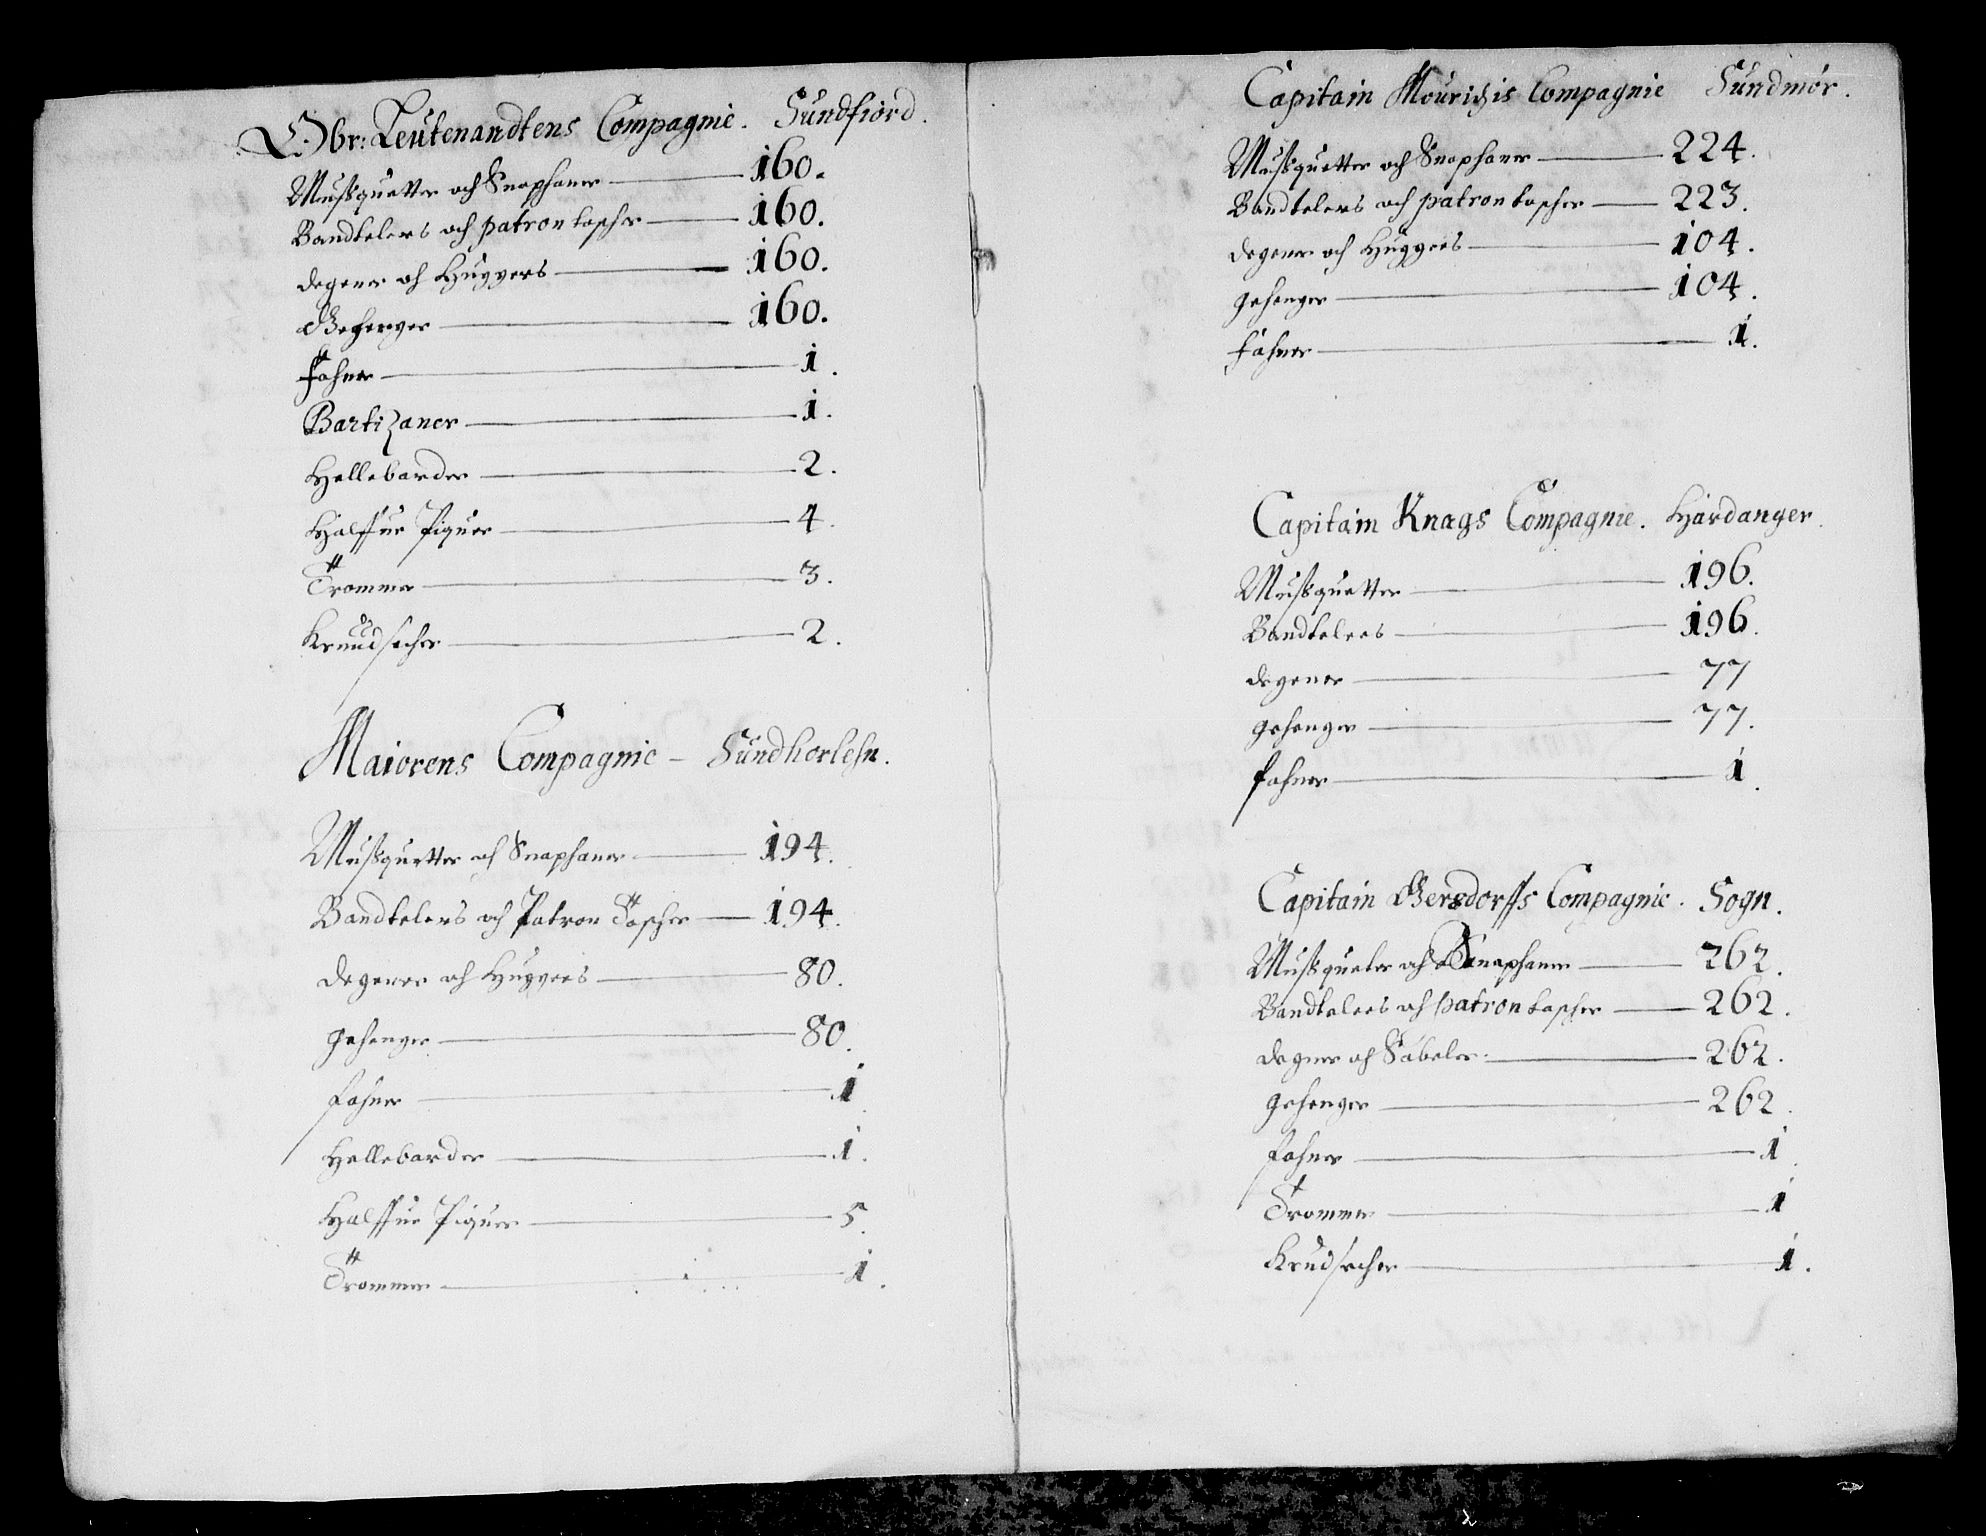 Obr: Leutenandtens Compagnie. Sundfiord.
Mußquetter och Snaphaner 160.
Bandtelers och patrontascher 160.
degener och Huggers 160.
Gehenger 160.
Fahner 1.
Partizaner 1.
Hellebarder 2.
Halffue Piquer 4.
Trommer 3.
Kruudsecher 2.
Maiorens Compagnie - Sundhorlehn.
Mußquetter och Snaphaner 194.
Bandtelers och Patron Tascher 194.
degener och Huggers 80.
gehenger 80.
fahner 1
Hellebarder 1.
Halffue Piquer 5.
Trommer 1.
Capitain Mouritzis Compagnie Sundmör.
Mußquetter och Snaphaner 224.
Bandtelers och patrontascher 223.
degener och Huggers 104.
gehenger 104.
fahner 1.
Capitain Knags Compagnie. Hardanger.
Mußquetter 196.
Bandtelers 196.
degener 77
gehenger 77.
fahner 1.
Capitain Gersdorffs Compagnie. Sogn.
Mußqueter och Snaphaner 262.
Bandtelers och patrontascher 262.
degner och Sabeler 262.
gehenger 262.
fahner 1.
Trommer 1
Krudsecher 1.